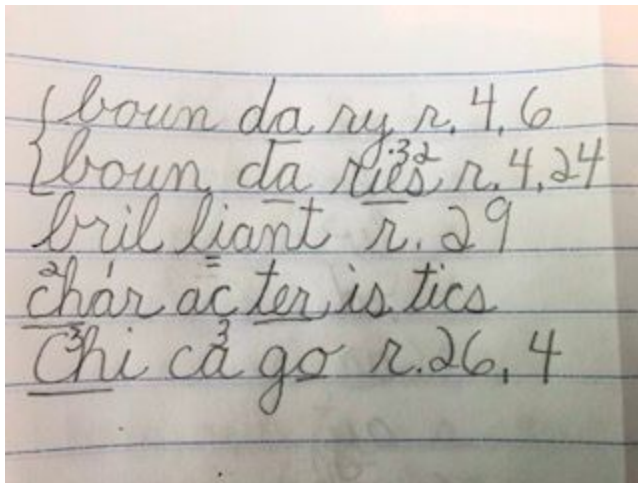 boun da ry r. 4, 6
boun da ries .3 2 r. 4, 24
bril liant r. 29
2 char ac ter is tics
Chi 3 ca 3 go r. 26, 4